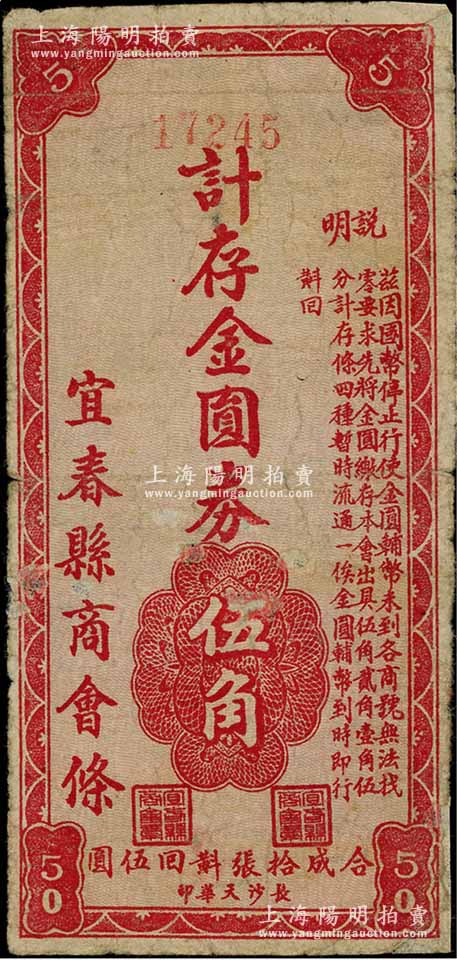 上海陽明拍賣
www.yangmingauction.com
5
5
17245
計存金圓券伍角
說明
茲因國幣停止行使金圓輔幣未到各商號無法找
零要求先將金圓繳存本會出具伍角貳角壹角伍
分計存條四種暫時流通一俟金圓輔幣到時即行
斢回
宜春縣商會條
上海陽明拍賣
www.yangmingauction.com
合成拾張斢回伍圓
長沙天華印
50
50
上海陽明拍賣
www.yangmingauction.com